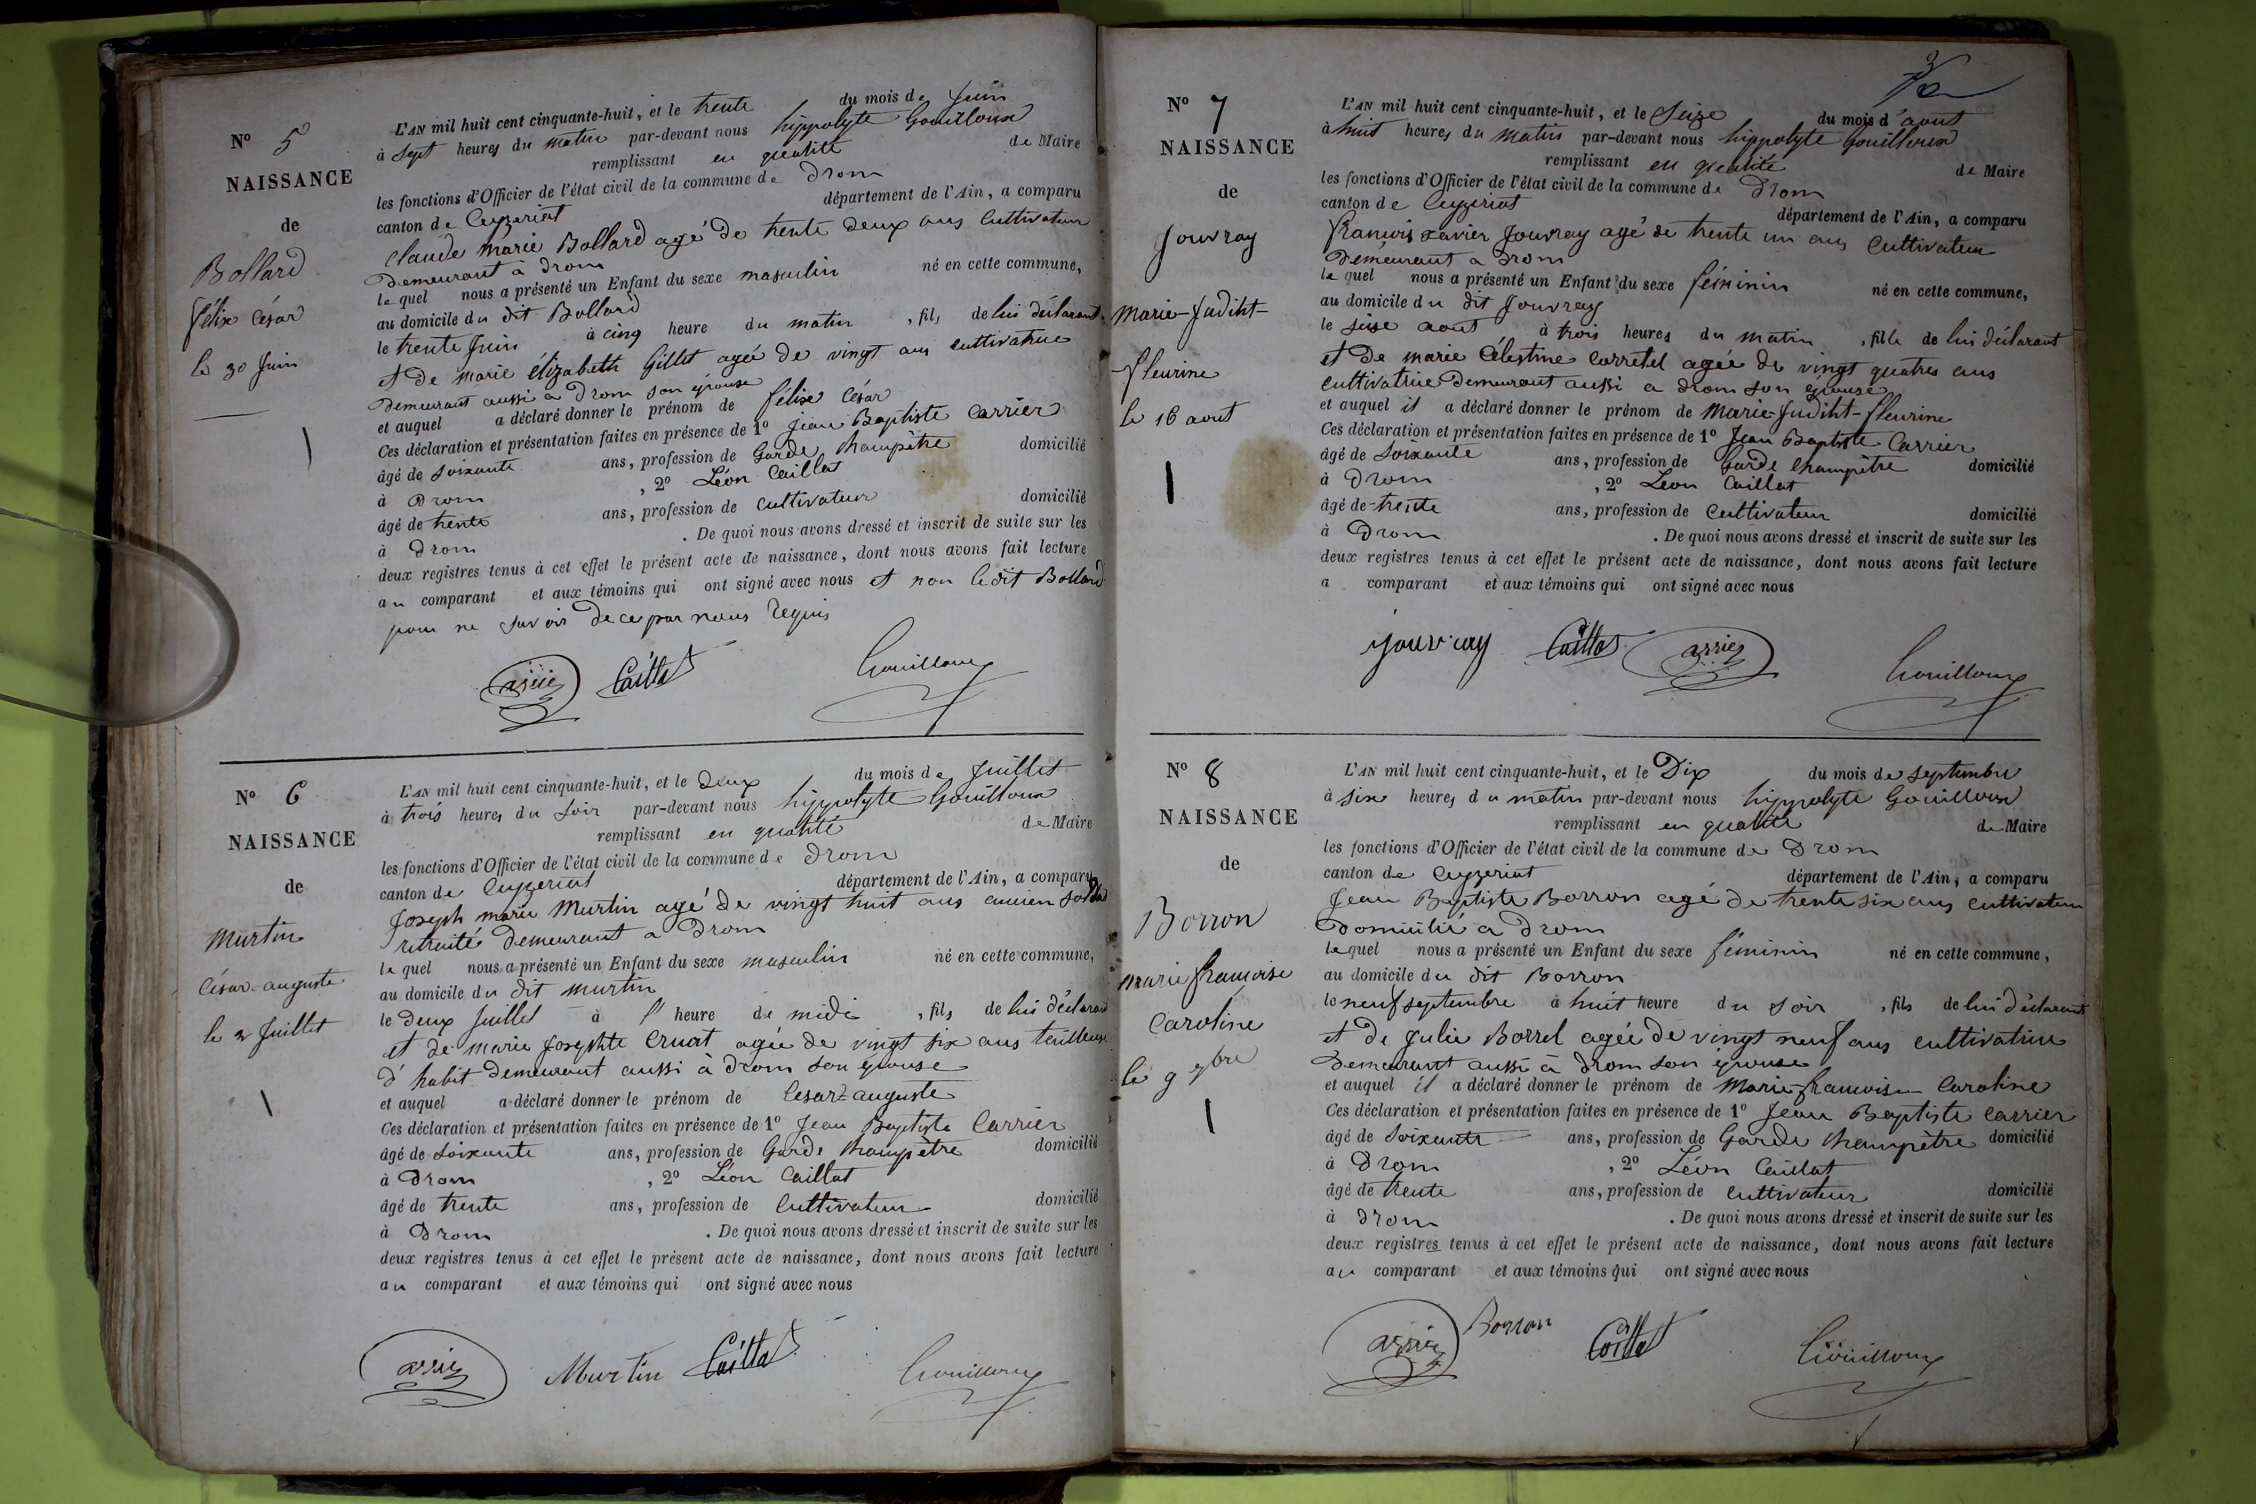 N° 5
NAISSANCE
de
Bollard
félix César
le 30 Juin
L'AN mil huit cent cinquante-huit, et le trente du mois de Juin
à sept heures du matin par-devant nous hippolyte Gouilloux
remplissant en qualité de Maire
les fonctions d'Officier de l'état civil de la commune de Drom
canton de Ceyzeriat département de l'Ain, a comparu
Claude marie Bollard agé de trente deux ans Cultivateur
Demeurant à Drom
lequel nous a présenté un Enfant du sexe masculin né en cette commune,
au domicile du dit Bollard
le trente Juin à cinq heure du matin, fils de lui déclarant
et de marie élizabeth Gillet agée de vingt ans cultivatrice
Demeurant aussi à Drom son épouse
et auquel a déclaré donner le prénom de félix César
Ces déclaration et présentation faites en présence de 1° Jean Baptiste Carrier
âgé de soixante ans, profession de Garde Champêtre domicilié
à Drom, 2° Léon Caillat
âgé de trente ans, profession de cultivateur domicilié
à Drom. De quoi nous avons dressé et inscrit de suite sur les
deux registres tenus à cet effet le présent acte de naissance, dont nous avons fait lecture
au comparant et aux témoins qui ont signé avec nous et non ledit Bollard
pour ne savoir de ce par nous requis
Carrier Caillat Gouilloux
N° 6
NAISSANCE
de
Murtin
César-auguste
le 2 Juillet
L'AN mil huit cent cinquante-huit, et le Deux du mois de Juillet
à trois heures du soir par-devant nous hippolyte Gouilloux
remplissant en qualité de Maire
les fonctions d'Officier de l'état civil de la commune de Drom
canton de Ceyzeriat département de l'Ain, a comparu
Joseph marie Murtin agé de vingt huit ans ancien soldat
retraité Demeurant a Drom
lequel nous a présenté un Enfant du sexe masculin né en cette commune,
au domicile du dit murtin
le Deux Juillet à l' heure de midi, fils de lui déclarant
et de marie Josephte Cruat agée de vingt six ans tailleuse
d'habit Demeurant aussi à Drom son épouse
et auquel a déclaré donner le prénom de Cesar-auguste
Ces déclaration et présentation faites en présence de 1° Jean Baptiste Carrier
âgé de soixante ans, profession de Garde Champêtre domicilié
à Drom, 2° Léon Caillat
âgé de trente ans, profession de Cultivateur domicilié
à Drom. De quoi nous avons dressé et inscrit de suite sur les
deux registres tenus à cet effet le présent acte de naissance, dont nous avons fait lecture
au comparant et aux témoins qui ont signé avec nous
Carrier Murtin Caillat Gouilloux
3
N° 7
NAISSANCE
de
Jouvray
Marie-Judiht-
fleurine
le 16 aout
L'AN mil huit cent cinquante-huit, et le Seize du mois d'aout
à huit heures du matin par-devant nous hippolyte Gouilloux
remplissant en qualité de Maire
les fonctions d'Officier de l'état civil de la commune de Drom
canton de Ceyzeriat département de l'Ain, a comparu
francois xavier Jouvray agé de trente un ans Cultivateur
Demeurant a Drom
lequel nous a présenté un Enfant du sexe féminin né en cette commune,
au domicile du dit Jouvray
le seise aout à trois heures du matin, fille de lui déclarant
et de marie Célestine Corretel agée de vingt quatres ans
Cultivatrice demeurant aussi a Drom son épouse
et auquel il a déclaré donner le prénom de Marie-Judiht-fleurine
Ces déclaration et présentation faites en présence de 1° Jean Baptiste Carrier
âgé de soixante ans, profession de Garde Champêtre domicilié
à Drom, 2° Léon Caillat
âgé de trente ans, profession de Cultivateur domicilié
à Drom. De quoi nous avons dressé et inscrit de suite sur les
deux registres tenus à cet effet le présent acte de naissance, dont nous avons fait lecture
a comparant et aux témoins qui ont signé avec nous
jouvray Caillat Carrier Gouilloux
N° 8
NAISSANCE
de
Borron
marie francoise
Caroline
le 9 7bre
L'AN mil huit cent cinquante-huit, et le Dix du mois de septembre
à six heures du matin par-devant nous hippolyte Gouilloux
remplissant en qualité de Maire
les fonctions d'Officier de l'état civil de la commune de Drom
canton de Ceyzeriat département de l'Ain, a comparu
Jean Baptiste Borron agé de trente six ans cultivateur
Domicilié a Drom
lequel nous a présenté un Enfant du sexe féminin né en cette commune,
au domicile du dit Borron
le neuf septembre à huit heure du soir, fils de lui déclarant
et de Julie Borrel agée de vingt neuf ans cultivatrice
Demeurant aussi à Drom son épouse
et auquel il a déclaré donner le prénom de Marie-francoise-Caroline
Ces déclaration et présentation faites en présence de 1° Jean Baptiste Carrier
âgé de soixante ans, profession de Garde Champêtre domicilié
à Drom, 2° Léon Caillat
âgé de trente ans, profession de cultivateur domicilié
à Drom. De quoi nous avons dressé et inscrit de suite sur les
deux registres tenus à cet effet le présent acte de naissance, dont nous avons fait lecture
au comparant et aux témoins qui ont signé avec nous
Carrier Borron Caillat Gouilloux